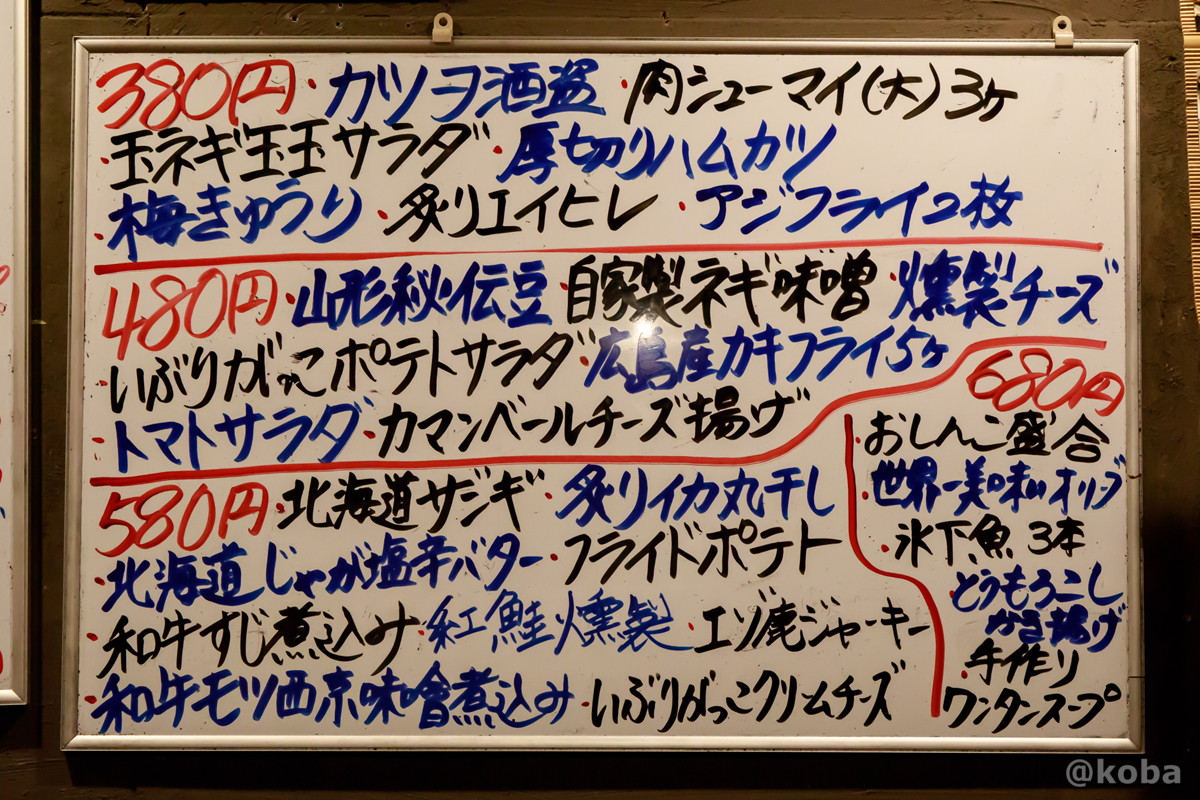 380円・カツヲ酒盗・肉シューマイ(大)3ヶ
・玉ネギ玉玉サラダ・厚切りハムカツ
・梅きゅうり・炙りエイヒレ・アジフライ2枚
480円・山形秘伝豆・自家製ネギ味噌・燻製チーズ
・いぶりがっこポテトサラダ・広島産カキフライ5ヶ
・トマトサラダ・カマンベールチーズ揚げ
680円
・おしんこ盛合
・世界一美味いオリーブ
・氷下魚3本
・とうもろこし
かき揚げ
・手作り
ワンタンスープ
580円・北海道サジギ・炙りイカ丸干し
・北海道じゃが塩辛バター・フライドポテト
・和牛すじ煮込み・紅鮭燻製・エゾ鹿ジャーキー
・和牛モツ西京味噌煮込み・いぶりがっこクリームチーズ
@koba